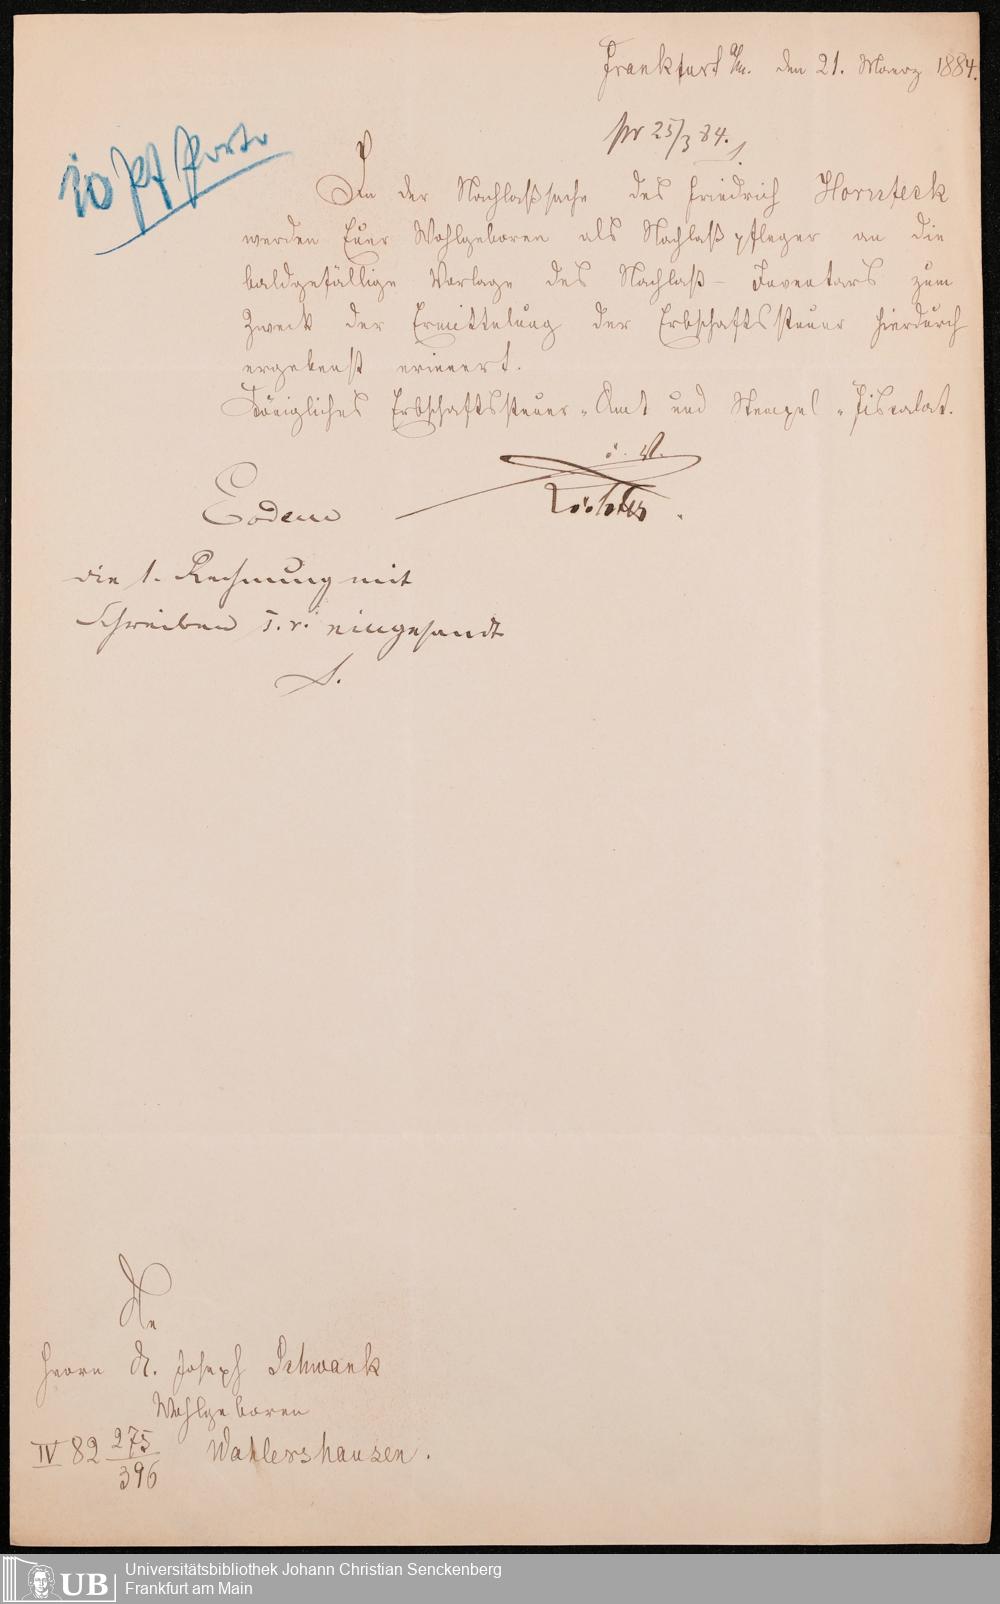 Frankfurt a/m. den 21. Maerz 1884.
pr 25/3 84.
10 Pf Porto
In der Nachlaßsache des Friedrich Hornfeck
werden Euer Wohlgeboren als Nachlaßpfleger an die
baldgefällige Vorlage des Nachlaß-Inventars zum
Zweck der Ermittelung der Erbschaftssteuer hierdurch
ergebenst erinnert.
Königliches Erbschaftssteuer-Amt und Stempel-Fiscalat.
Eodem
die 1. Rechnung mit
Schreiben s. r. eingesandt
S.
An
Herrn Dr. Joseph Schwank
Wohlgeboren
IV 82 275/396 Wahlershausen.
UB Universitätsbibliothek Johann Christian Senckenberg
Frankfurt am Main